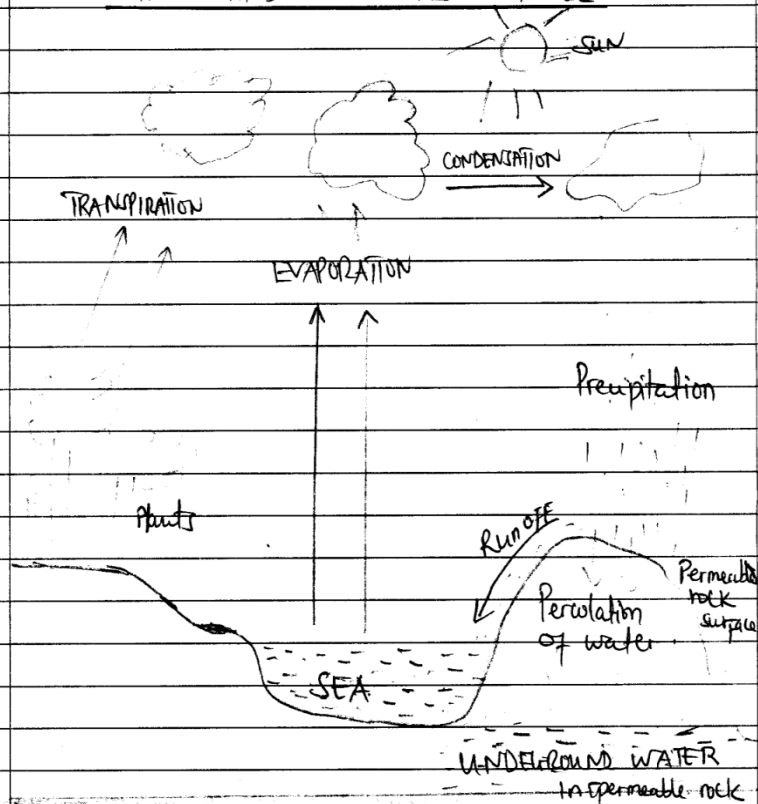 SUN
CONDENSATION
TRANSPIRATION
EVAPORATION
Precipitation
Plants
Run OFF
Permeable
rock
surface
Percolation
of water
SEA
UNDERGROUND WATER
Impermeable rock